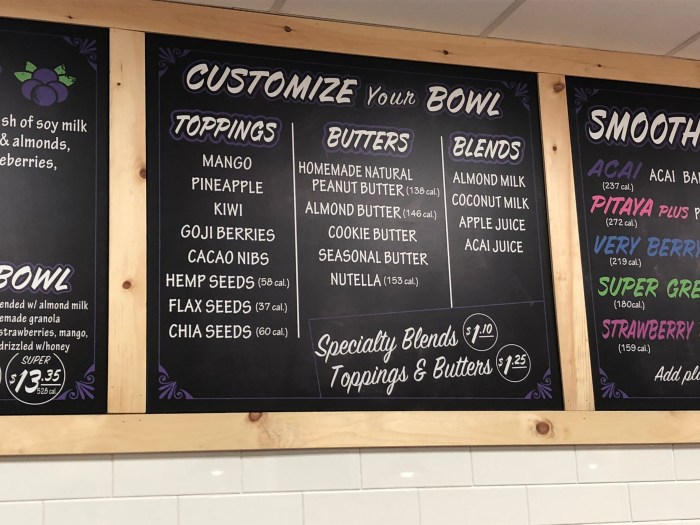 sh of soy milk
& almonds,
eberries,
BOWL
ended w/ almond milk
emade granola
strawberries, mango,
drizzled w/honey
SUPER
$13.35
528 cal.
CUSTOMIZE Your BOWL
TOPPINGS
MANGO
PINEAPPLE
KIWI
GOJI BERRIES
CACAO NIBS
HEMP SEEDS (58 cal.)
FLAX SEEDS (37 cal.)
CHIA SEEDS (60 cal.)
BUTTERS
HOMEMADE NATURAL
PEANUT BUTTER (138 cal.)
ALMOND BUTTER (146 cal.)
COOKIE BUTTER
SEASONAL BUTTER
NUTELLA (153 cal.)
BLENDS
ALMOND MILK
COCONUT MILK
APPLE JUICE
ACAI JUICE
Specialty Blends $1.10
Toppings & Butters $1.25
SMOOTH
ACAI ACAI BA
(237 cal.)
PITAYA PLUS P
(272 cal.)
VERY BERRY
(219 cal.)
SUPER GRE
(180cal.)
STRAWBERRY
(159 cal.)
Add pl